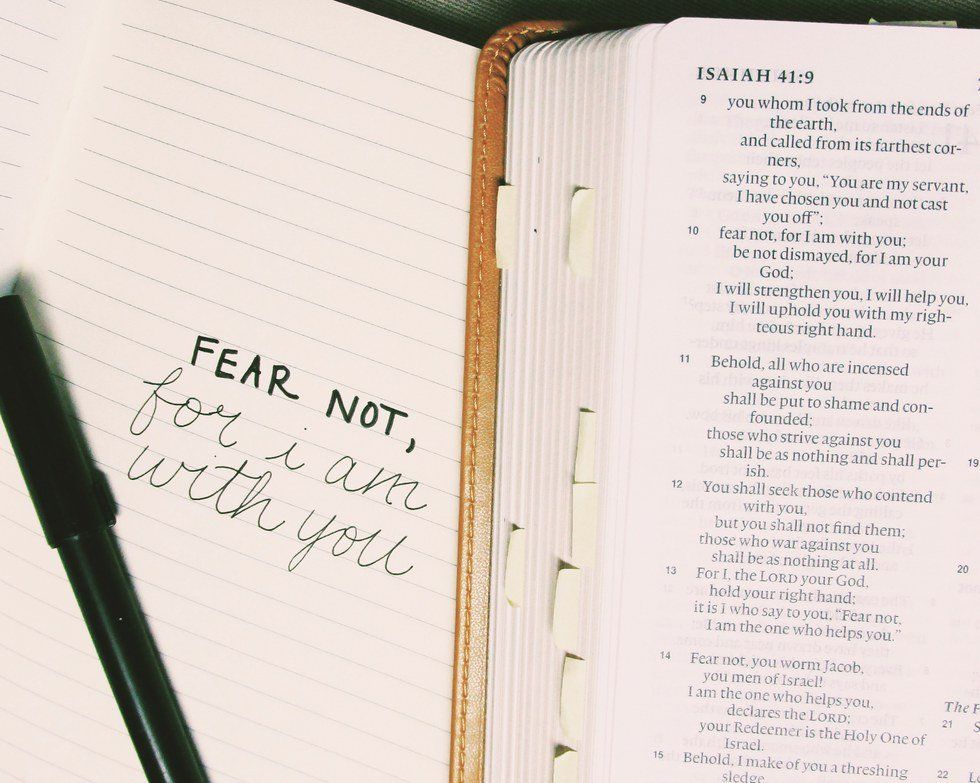 FEAR NOT,
for i am
with you
ISAIAH 41:9
9 you whom I took from the ends of
the earth,
and called from its farthest cor-
ners,
saying to you, “You are my servant,
I have chosen you and not cast
you off”;
10 fear not, for I am with you;
be not dismayed, for I am your
God;
I will strengthen you, I will help you,
I will uphold you with my righ-
teous right hand.
11 Behold, all who are incensed
against you
shall be put to shame and con-
founded;
those who strive against you
shall be as nothing and shall per-
ish.
12 You shall seek those who contend
with you,
but you shall not find them;
those who war against you
shall be as nothing at all.
13 For I, the LORD your God,
hold your right hand;
it is I who say to you, “Fear not,
I am the one who helps you.”
14 Fear not, you worm Jacob,
you men of Israel!
I am the one who helps you,
declares the LORD;
your Redeemer is the Holy One of
Israel.
15 Behold, I make of you a threshing
sledge,
19
20
The F
21 S
22